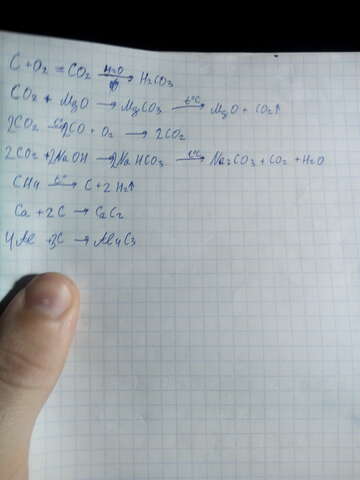 C + O₂ = CO₂ —H₂O→ H₂CO₃
CO₂ + MgO → MgCO₃ —t°C→ MgO + CO₂↑
2CO₂ 2CO + O₂ → 2CO₂
2CO₂ + 2NaOH → 2NaHCO₃ —t°C→ Na₂CO₃ + CO₂ + H₂O
CH₄ —t°→ C + 2H₂↑
Ca + 2C → CaC₂
4Al + 3C → Al₄C₃